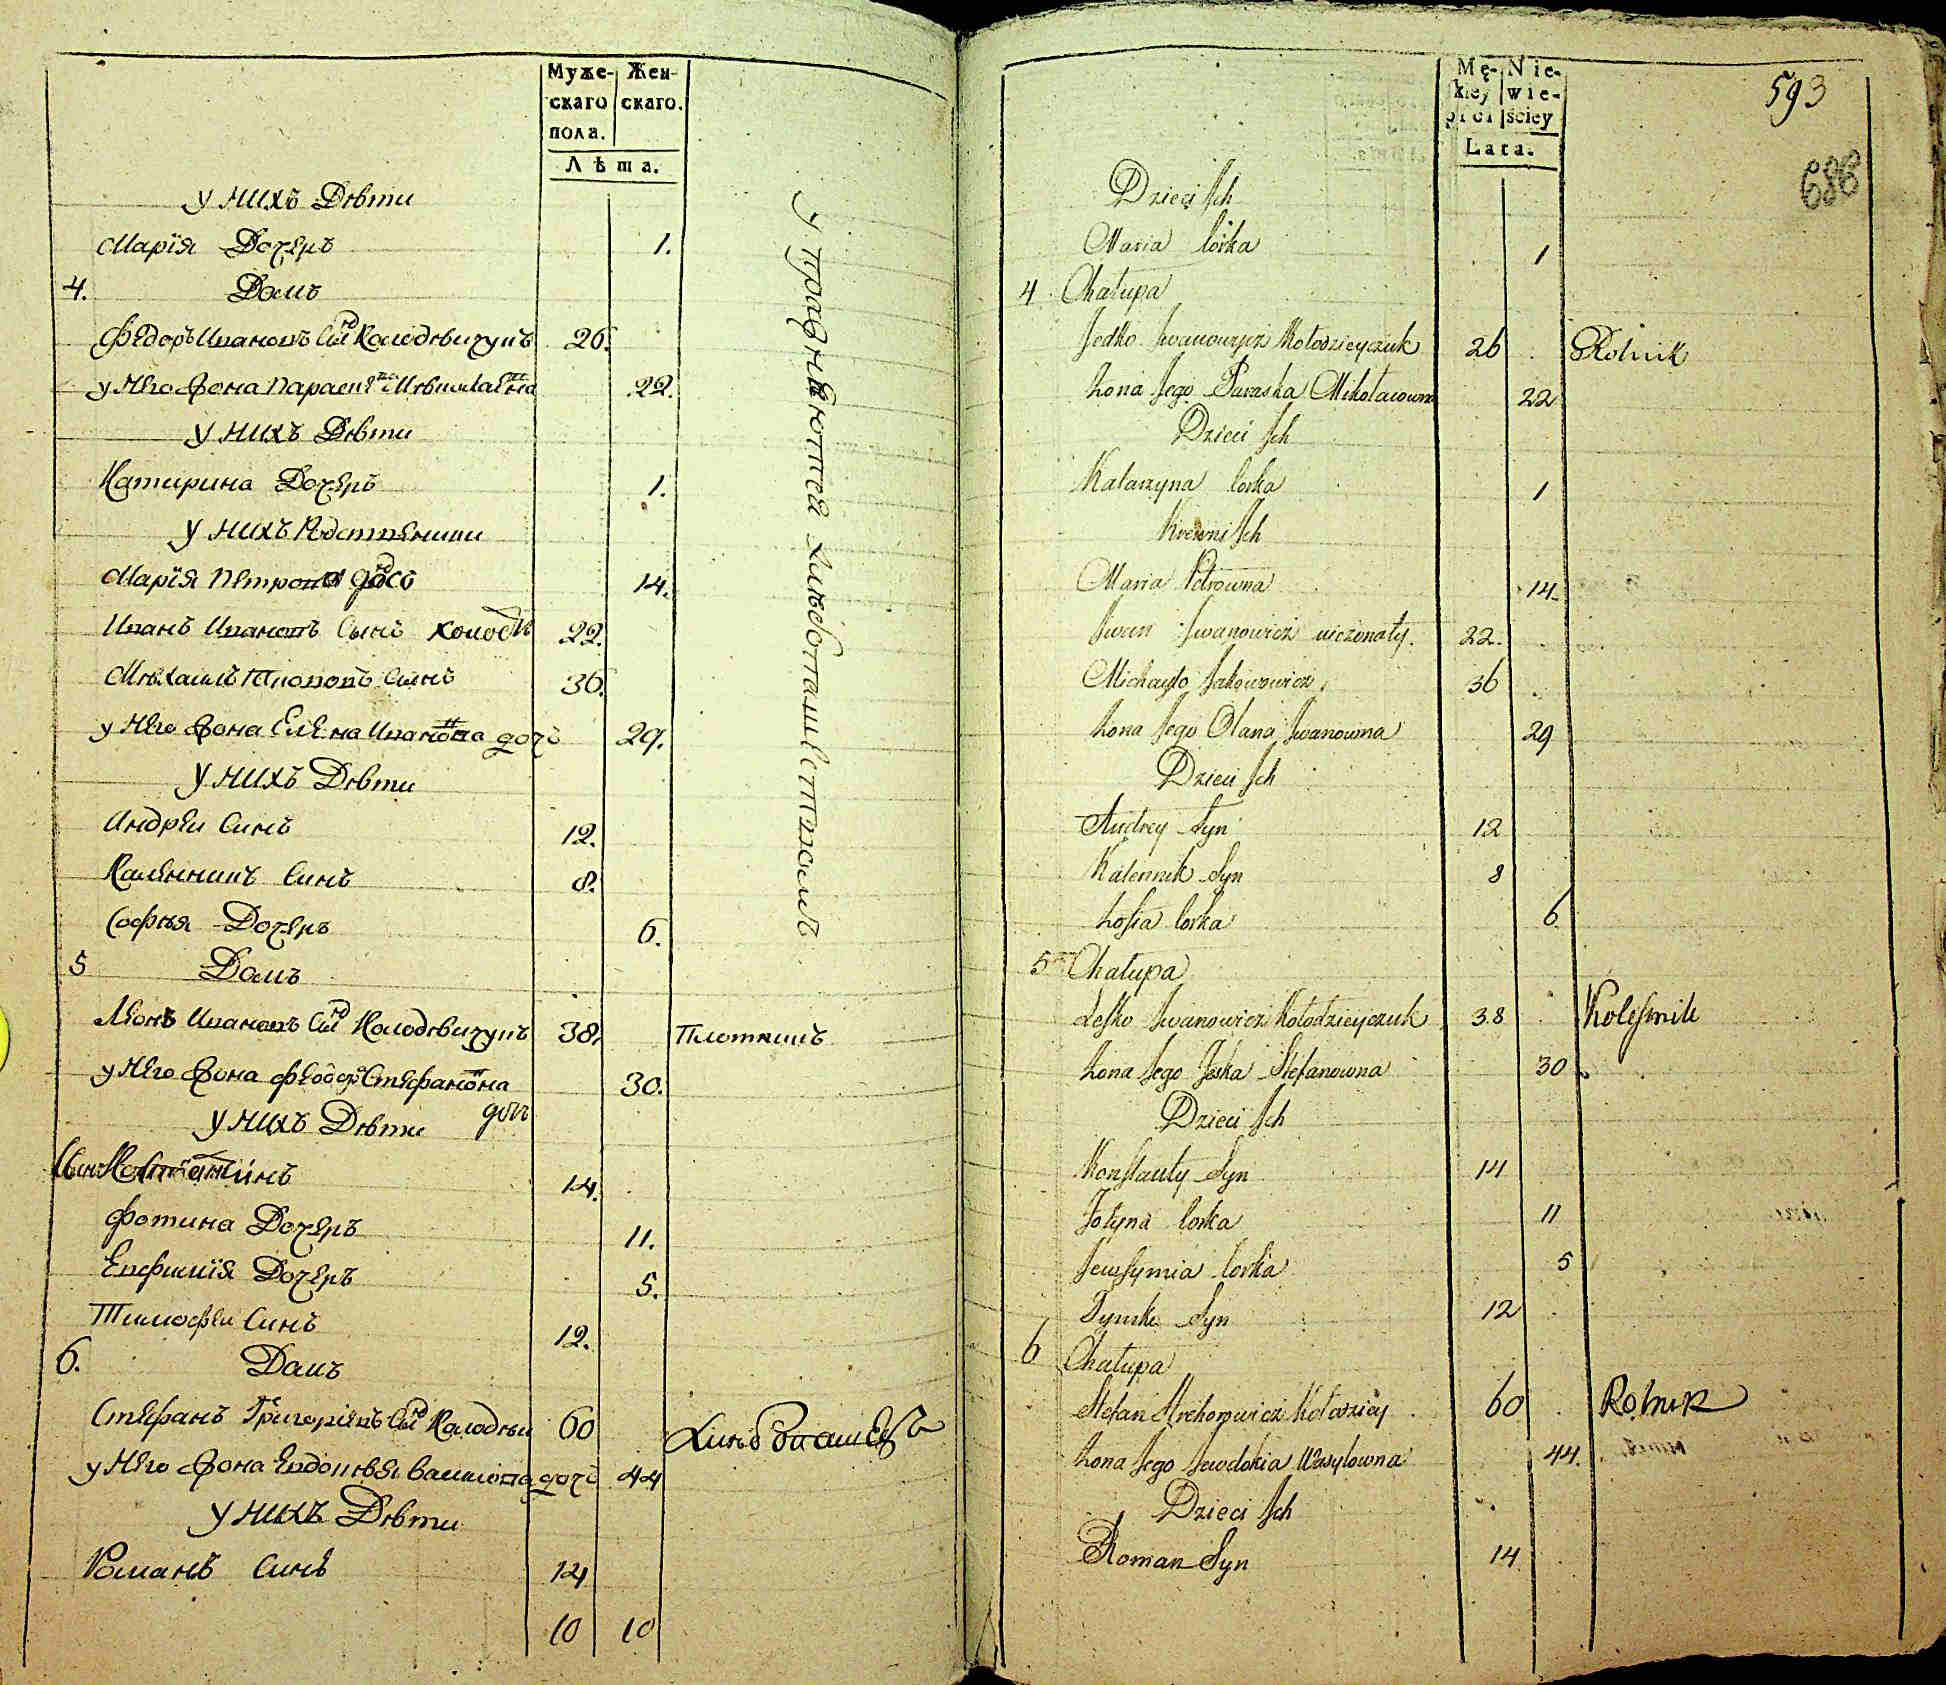 Муже- Жен-
скаго скаго.
пола.
Лѣта.
у нихъ Дѣти
Марїя Дочеръ 1.
4. Домъ
Федоръ Ивановъ Сынъ Колодѣичукъ 26.
у Него Жона Параск Миколаевна 22.
у нихъ Дѣти
Катирина Дочеръ 1.
у нихъ Родственики
Марїя Петрова дочь 14.
Иванъ Ивановъ Сынъ холосты 22.
Михаилъ Якововъ Сынъ 36.
у Него Жона Елена Иванова дочь 29.
у нихъ Дѣти
Андреи Синъ 12.
Каленникъ Синъ 8.
Софѣя Дочеръ 6.
5 Домъ
Леонъ Ивановъ Сынъ Колодѣичукъ 38. Плотникъ
у Него Жона Феодор Стефанова 30.
дочь
у нихъ Дѣти
Синъ Константинъ 14.
Фотина Дочеръ 11.
Евфимїя Дочеръ 5.
Тимофеи Синъ 12.
6. Домъ
Стефанъ Григоріевъ Сынъ Колодѣи 60 Хлѣбопашецъ
у Него Жона Евдокѣя Василіова дочь 44
у нихъ Дѣти
Романъ Синъ 14
10 10
Упражняются хлѣбопашествомъ
593
686
Mę- Nie-
kiey wie-
płci ściey
Lata.
Dzieci Ich
Maria Corka 1
4 Chałupa
Fedko Iwanowicz Kołodzieyczuk 26 Rolnik
Żona Jego Paraska Mikołaiowna 22
Dzieci Ich
Katarzyna Corka 1
Krewni Ich
Maria Petrowna 14.
Iwan Iwanowicz nieżonaty. 22.
Michayło Jakowowicz 36
Żona Jego Ołana Iwanowna 29
Dzieci Ich
Andrey Syn 12
Kalennik Syn 8
Zofia Corka 6
5 Chałupa
Lesko Iwanowicz Kołodzieyczuk 38 Kolesnik
Żona Jego Feska Stefanowna 30
Dzieci Ich
Konstanty Syn 14
Fotyna Corka 11
Jewfymia Corka 5
Tymko Syn 12
6 Chałupa
Stefan Hrehorowicz Kołodziey 60 Rolnik
Żona Jego Jewdokia Wasylowna 44.
Dzieci Ich
Roman Syn 14